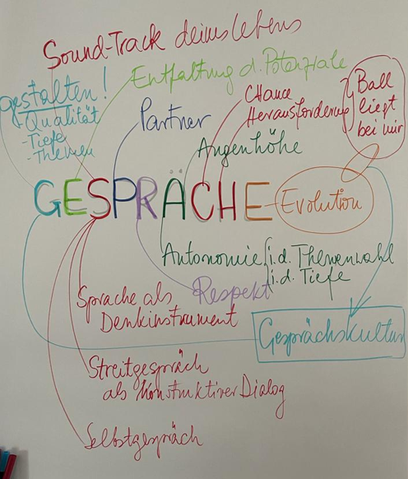 Sound-Track deines Lebens
Entfaltung d. Potenziale
gestalten!
Qualität
- Tiefe
- Themen
Partner
Chance
Herausforderung
Ball
liegt
bei mir
Augenhöhe
GESPRÄCHE
Evolution
Autonomie i.d. Themenwahl
i.d. Tiefe
Respekt
Sprache als
Denkinstrument
Gesprächskultur
Streitgespräch
als konstruktiver Dialog
Selbstgespräch